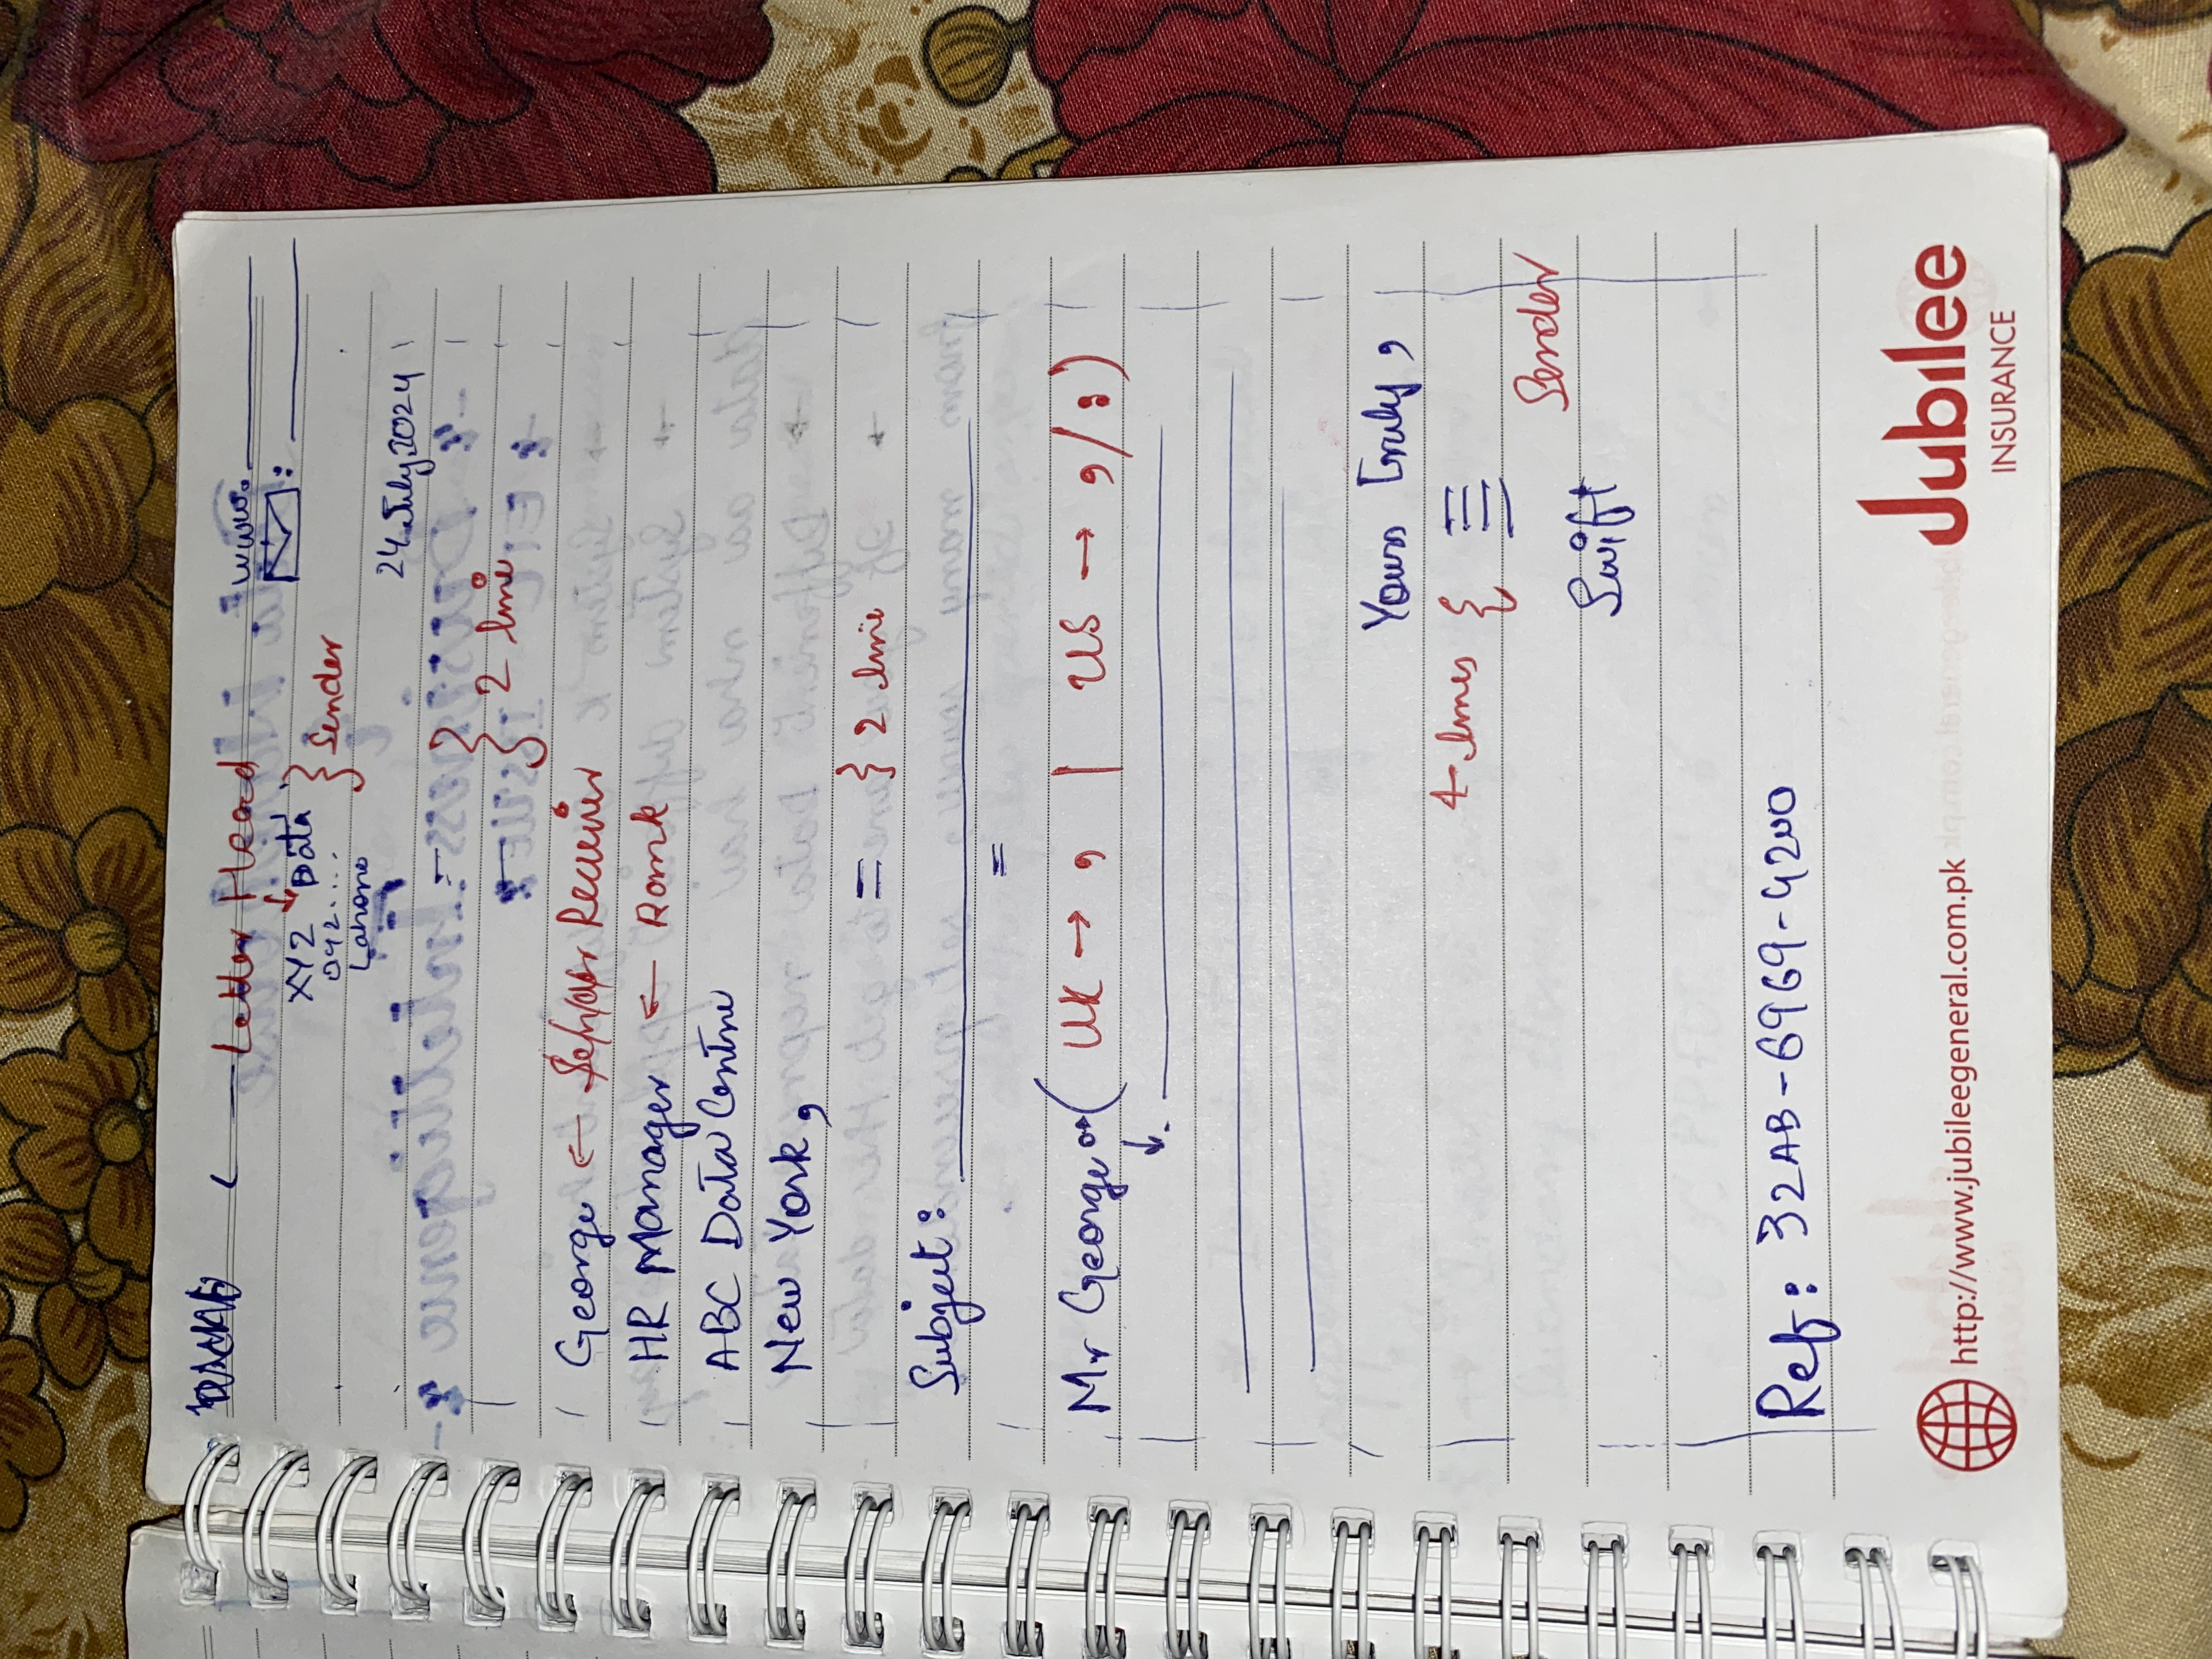 Letter Head
www.
XYZ Data } Sender
042....
Lahore
24 July, 2024
} 2 line
George ← Sender Reciever
HR Manager ← Rank
ABC Data Centre
New York,
= } 2 line
Subject:
=
Mr George (UK → , | US → , / :)
Yours truly,
4 lines {
Sender
Swift
Ref: 32AB-6969-4200
http://www.jubileegeneral.com.pk
Jubilee
INSURANCE